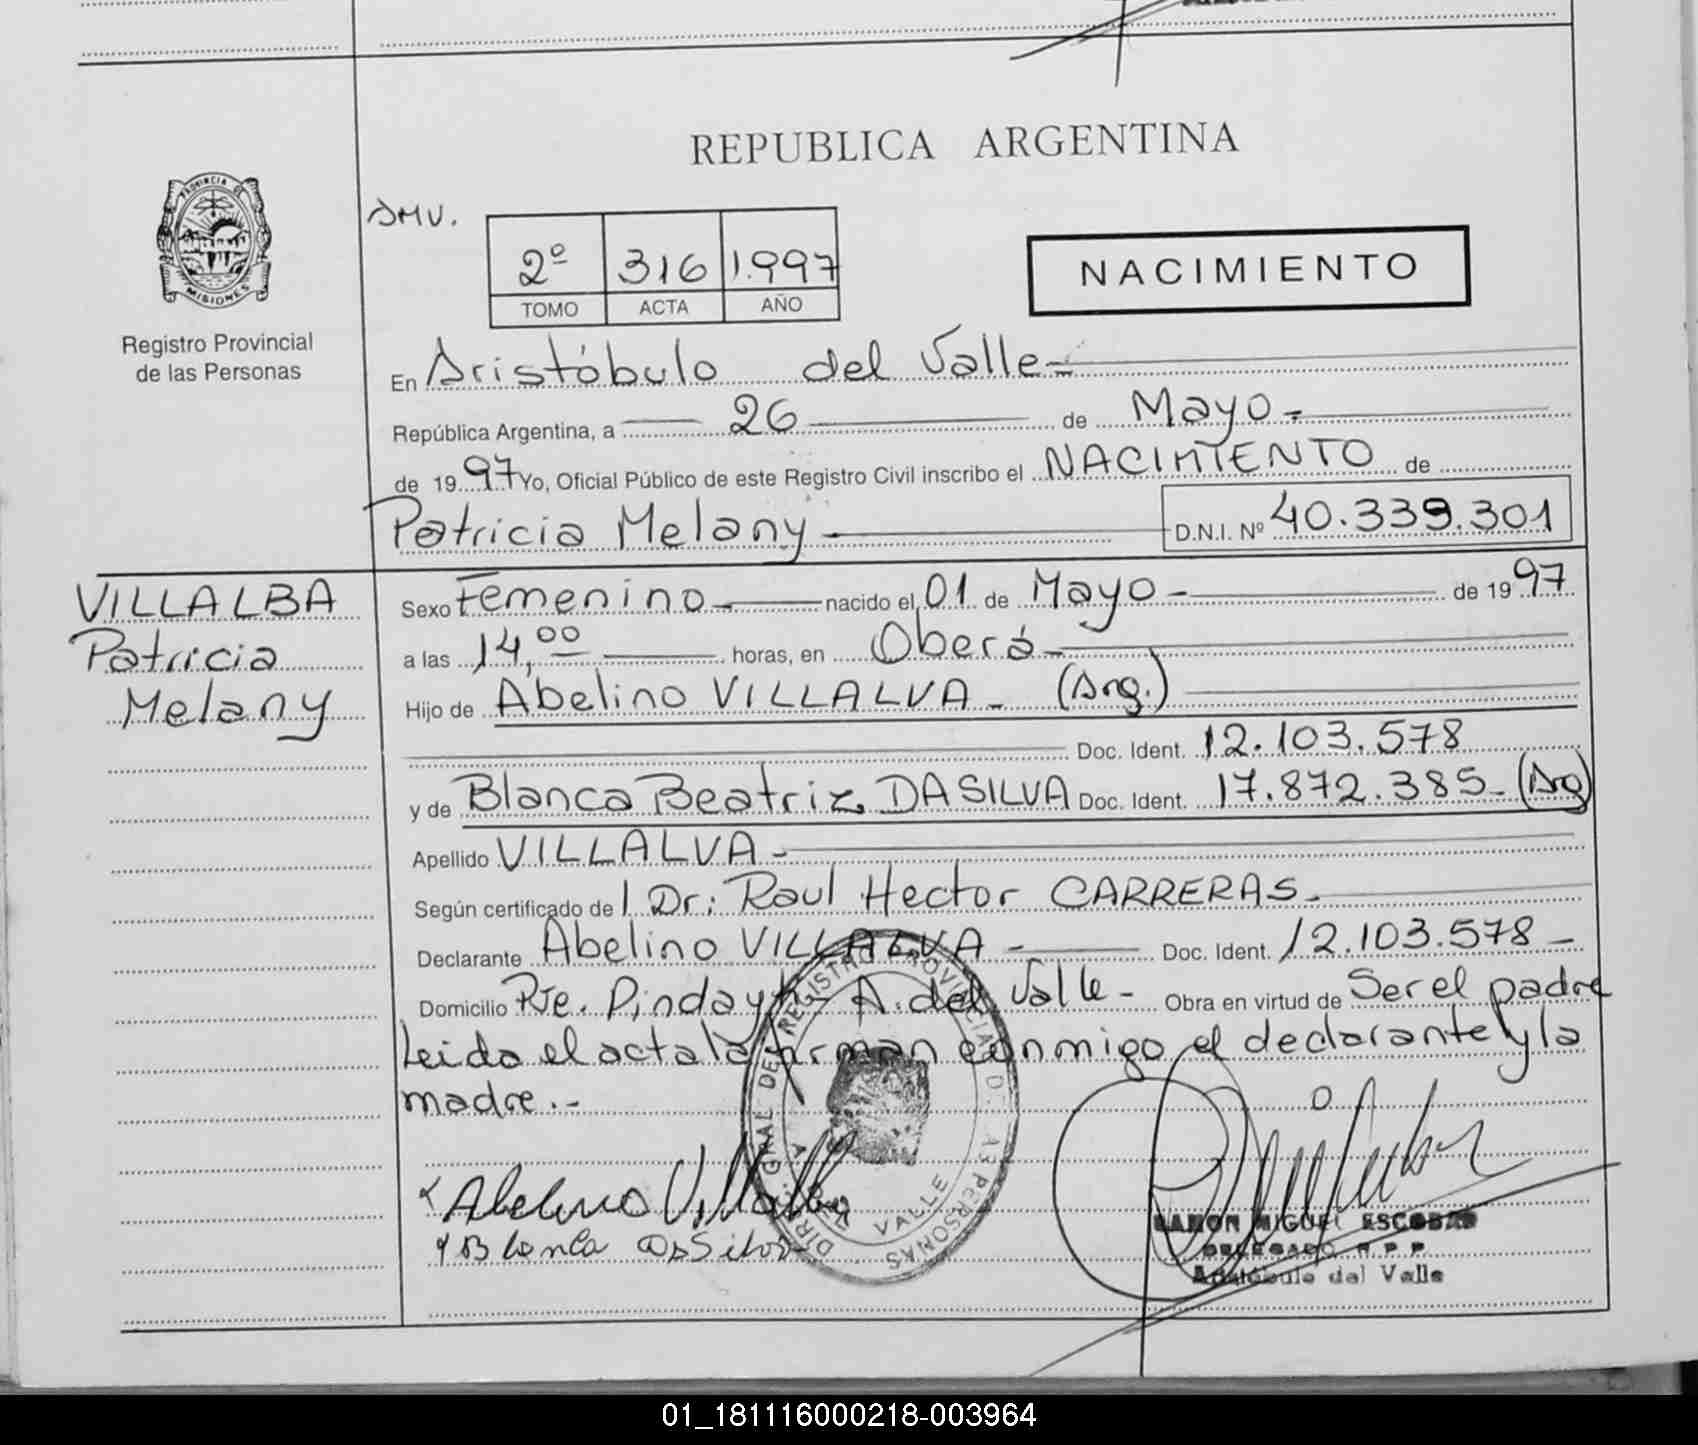 REPUBLICA ARGENTINA
PROVINCIA DE
MISIONES
Registro Provincial
de las Personas
AMV.
2º 316 1.997
TOMO ACTA AÑO
NACIMIENTO
En Aristóbulo del Valle-
República Argentina, a 26 de Mayo-
de 1997 Yo, Oficial Público de este Registro Civil inscribo el NACIMIENTO de
Patricia Melany D.N.I. Nº 40.339.301
VILLALBA
Patricia
Melany
Sexo Femenino- nacido el 01 de Mayo- de 1997
a las 14,00 horas, en Oberá-
Hijo de Abelino VILLALVA- (Arg.)
Doc. Ident. 12.103.578
y de Blanca Beatriz DASILVA Doc. Ident. 17.872.385- (Arg)
Apellido VILLALVA-
Según certificado de l Dr: Raul Hector CARRERAS-
Declarante Abelino VILLALVA- Doc. Ident. 12.103.578-
Domicilio Pje. Pindayti- A. del Valle- Obra en virtud de Ser el padre
Leida el acta la firman conmigo el declarante y la
madre.-
Abelino Villalba
Blanca DaSilva
DIR. GRAL DEL REGISTRO PROVINCIAL DE LAS PERSONAS
VALLE
RAMON MIGUEL ESCOBAR
DELEGADO R.P.P.
Aristóbulo del Valle
01_181116000218-003964